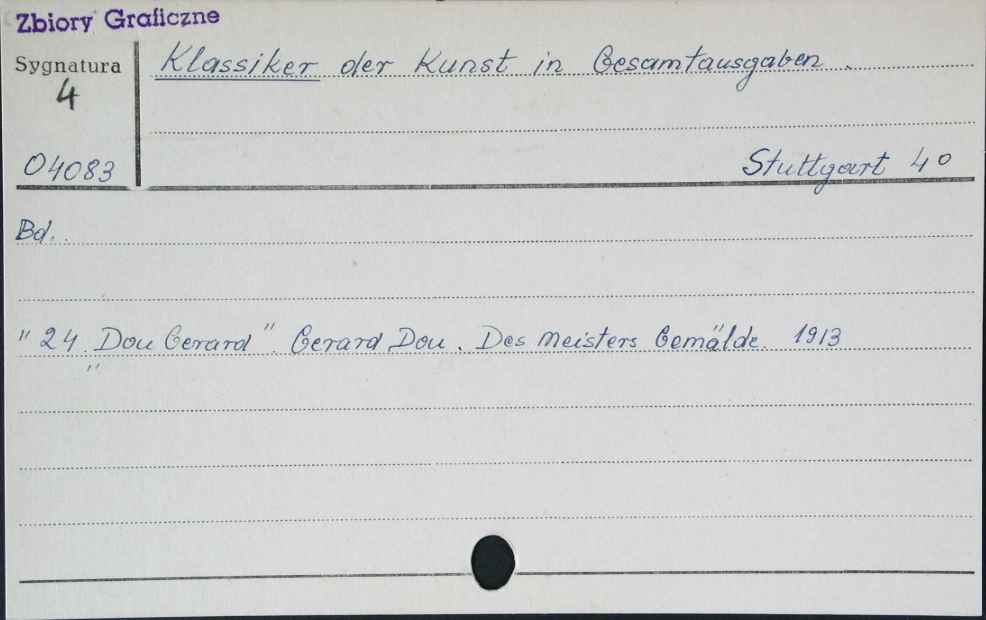 Zbiory Graficzne
Sygnatura
4
04083
Klassiker der Kunst in Gesamtausgaben.
Stuttgart 4°
Bd.
" 24 Dou Gerard" Gerard Dou. Des Meisters Gemälde. 1913
"